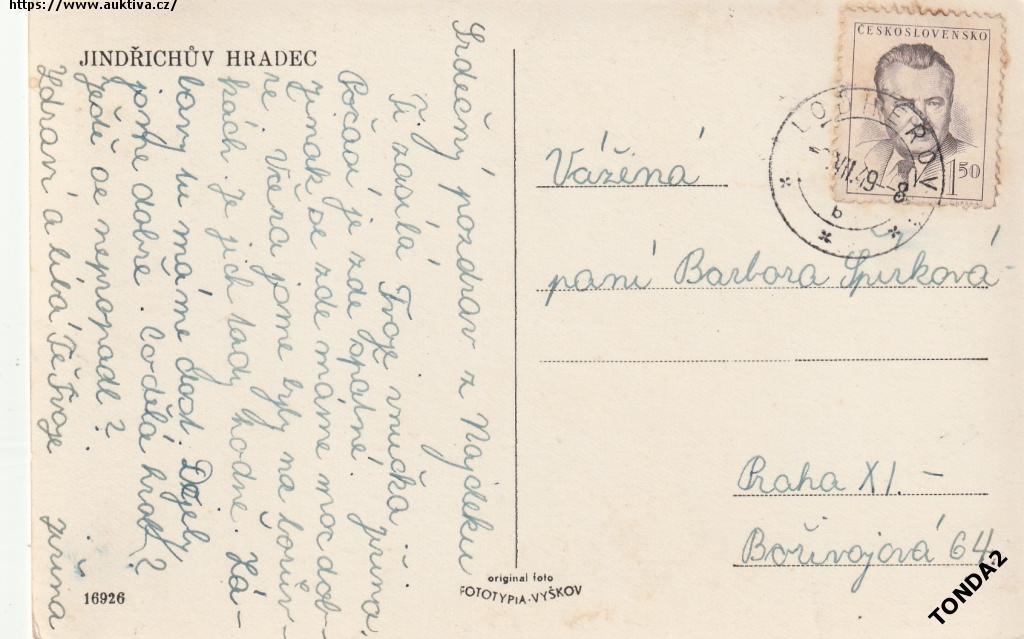 https://www.auktiva.cz/
JINDŘICHŮV HRADEC
Srdečný pozdrav z Najdeku
Ti zasílá Tvoje vnučka Jiřina.
Počasí je zde špatné.
jinak se zde máme moc dob-
ře. Včera jsme byly na borův-
kách. Je jich tady hodně. Zá-
bavy tu máme dost. Dojely
jsme dobře. Co dělá hrob?
Ještě se nepropadl?
Zdraví a líbá Tě Tvoje
Jiřina
16926
original foto
FOTOTYPIA-VYŠKOV
ČESKOSLOVENSKO
1 50
LODHÉŘOV
VII.49-8
b
Vážená
paní Barbora Spirková
Praha XI. -
Bořivojová 64
TONDA2